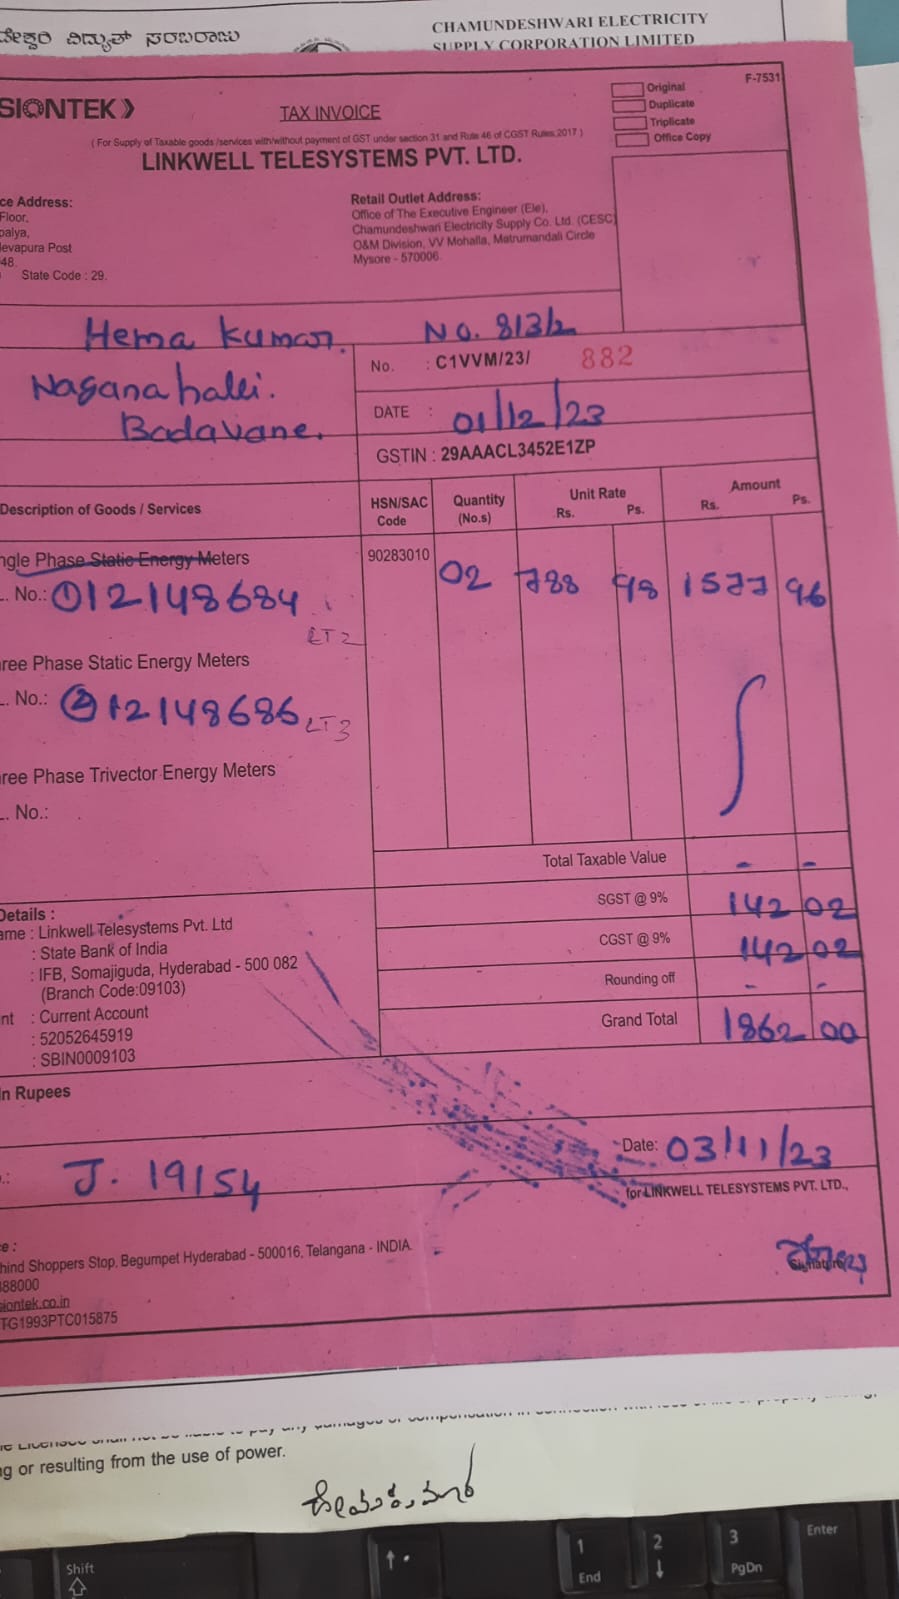 ದೇಶ್ವರಿ ವಿದ್ಯುತ್ ಸರಬರಾಜು
CHAMUNDESHWARI ELECTRICITY
SUPPLY CORPORATION LIMITED
F-7531
SIONTEK
TAX INVOICE
Original
Duplicate
Triplicate
Office Copy
( For Supply of Taxable goods /services with/without payment of GST under section 31 and Rule 46 of CGST Rules,2017 )
LINKWELL TELESYSTEMS PVT. LTD.
ce Address:
Floor,
palya,
levapura Post
48.
State Code : 29.
Retail Outlet Address:
Office of The Executive Engineer (Ele),
Chamundeshwari Electricity Supply Co. Ltd. (CESC)
O&M Division, VV Mohalla, Matrumandali Circle
Mysore - 570006.
Hema Kumar. No. 813/2
Naganahalli.
Badavane.
No. : C1VVM/23/ 882
DATE : 01/12/23
GSTIN : 29AAACL3452E1ZP
Description of Goods / Services
HSN/SAC Code
Quantity (No.s)
Unit Rate
Rs. Ps.
Amount
Rs. Ps.
ngle Phase Static Energy Meters
90283010
02 788 98 1577 96
.. No.: ① 012148684
LT2
ree Phase Static Energy Meters
.. No.: ② 12148686 LT3
ree Phase Trivector Energy Meters
.. No.:
Total Taxable Value - -
SGST @ 9% 142 02
CGST @ 9% 142 02
Rounding off - -
Grand Total 1862 00
Details :
ame : Linkwell Telesystems Pvt. Ltd
: State Bank of India
: IFB, Somajiguda, Hyderabad - 500 082
(Branch Code:09103)
nt : Current Account
: 52052645919
: SBIN0009103
n Rupees
.: J. 19154
Date: 03/11/23
for LINKWELL TELESYSTEMS PVT. LTD.,
Signature
ce :
hind Shoppers Stop, Begumpet Hyderabad - 500016, Telangana - INDIA.
88000
siontek.co.in
TG1993PTC015875
g or resulting from the use of power.
ಹೇಮಕುಮಾರ
Shift
1
End
2
3
PgDn
Enter